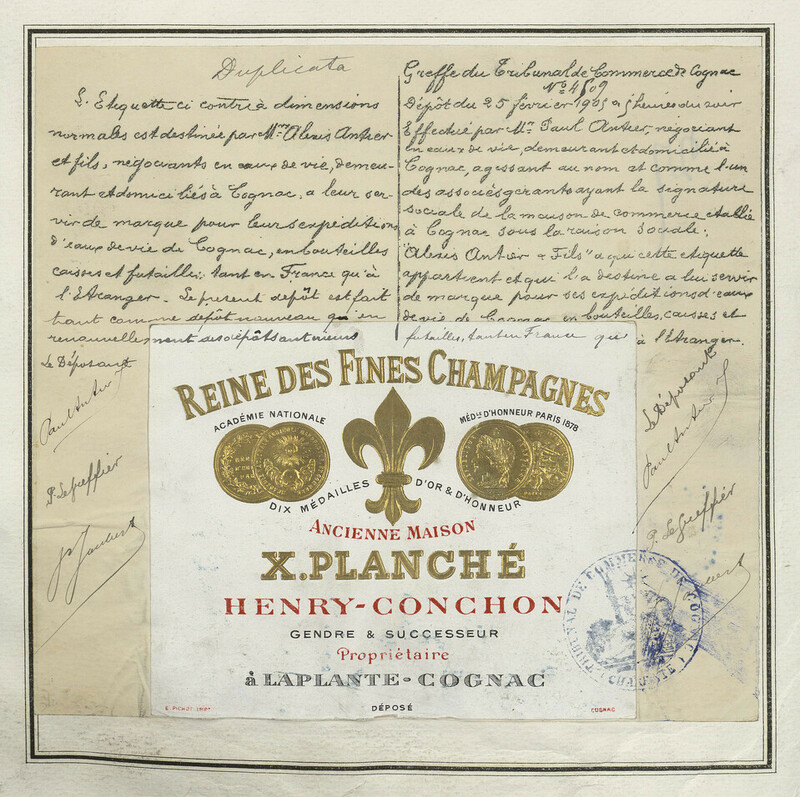 Duplicata
L'Etiquette ci contre à dimensions
normales est destinée par Mrs Alexis Antier
et fils, négociants en eaux de vie, demeu-
rant et domiciliés à Cognac, a leur ser-
vir de marque pour leurs expéditions
d'eaux de vie de Cognac, en bouteilles
caisses et futailles; tant en France qu'à
l'Etranger. Le present depôt est fait
tant comme depôt nouveau qu'en
renouvellement des dépôts anterieurs
Le Déposant
Paul Antier
P. Le Greffier
Greffe du Tribunal de Commerce de Cognac
No 4609
Dépôt du 25 février 1905 à 5 heures du soir
Effectué par Mr Paul Antier, négociant
en eaux de vie, demeurant et domicilié à
Cognac, agissant au nom et comme l'un
des associés gérants ayant la signature
sociale de la maison de commerce établie
à Cognac sous la raison sociale:
"Alexis Antier & Fils" a qui cette etiquette
appartient et qui l'a destine a lui servir
de marque pour ses expéditions d'eaux
de vie de Cognac en bouteilles, caisses et
futailles, tant en France qu' à l'Etranger.
Le Déposant
Paul Antier
P. Le Greffier
REINE DES FINES CHAMPAGNES
ACADÉMIE NATIONALE
MÉDLE D'HONNEUR PARIS 1878
DIX MÉDAILLES D'OR & D'HONNEUR
ANCIENNE MAISON
X. PLANCHÉ
HENRY-CONCHON
GENDRE & SUCCESSEUR
Propriétaire
à LAPLANTE-COGNAC
DÉPOSÉ
COGNAC
TRIBUNAL DE COMMERCE DE COGNAC
(CHARENTE)